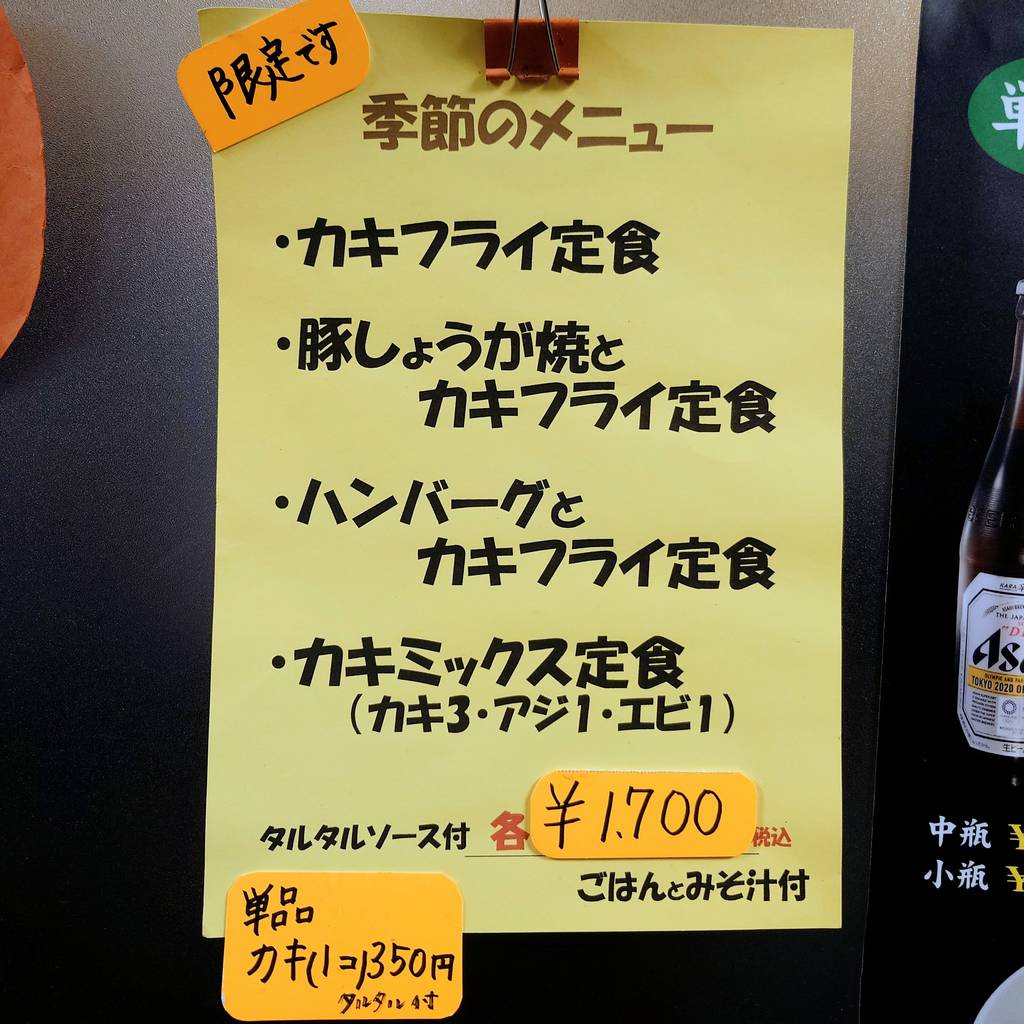 限定です
季節のメニュー
・カキフライ定食
・豚しょうが焼と
カキフライ定食
・ハンバーグと
カキフライ定食
・カキミックス定食
(カキ3・アジ1・エビ1)
タルタルソース付 各 ¥1,700 税込
ごはんとみそ汁付
単品
カキ(1コ)350円
タルタル付
単
TOKYO 2020
中瓶 ¥
小瓶 ¥